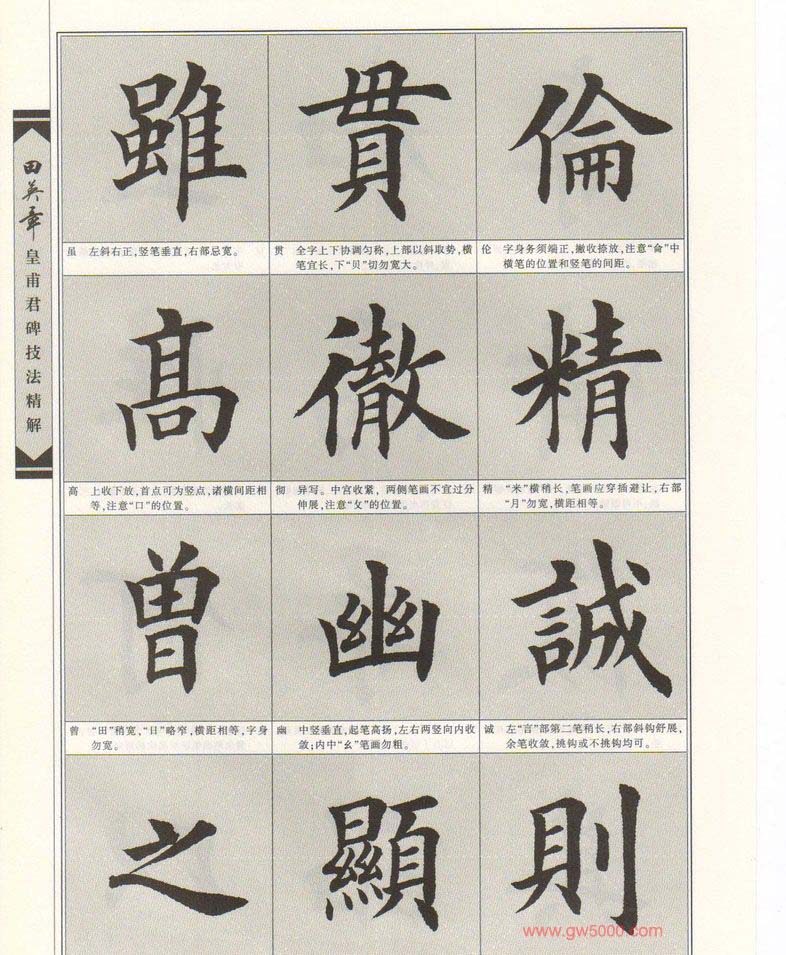 田英章
皇甫君碑技法精解
雖 貫 倫
虽 左斜右正，竖笔垂直，右部忌宽。
贯 全字上下协调匀称，上部以斜取势，横
笔宜长，下“贝”切勿宽大。
伦 字身务须端正，撇收捺放，注意“侖”中
横笔的位置和竖笔的间距。
髙 徹 精
高 上收下放，首点可为竖点，诸横间距相
等，注意“口”的位置。
彻 异写。中宫收紧，两侧笔画不宜过分
伸展，注意“攵”的位置。
精 “米”横稍长，笔画应穿插避让，右部
“月”勿宽，横距相等。
曽 幽 誠
曾 “田”稍宽，“日”略窄，横距相等，字身
勿宽。
幽 中竖垂直，起笔高扬，左右两竖向内收
敛；内中“幺”笔画勿粗。
诚 左“言”部第二笔稍长，右部斜钩舒展，
余笔收敛，挑钩或不挑钩均可。
之 顯 則
www.gw5000.com